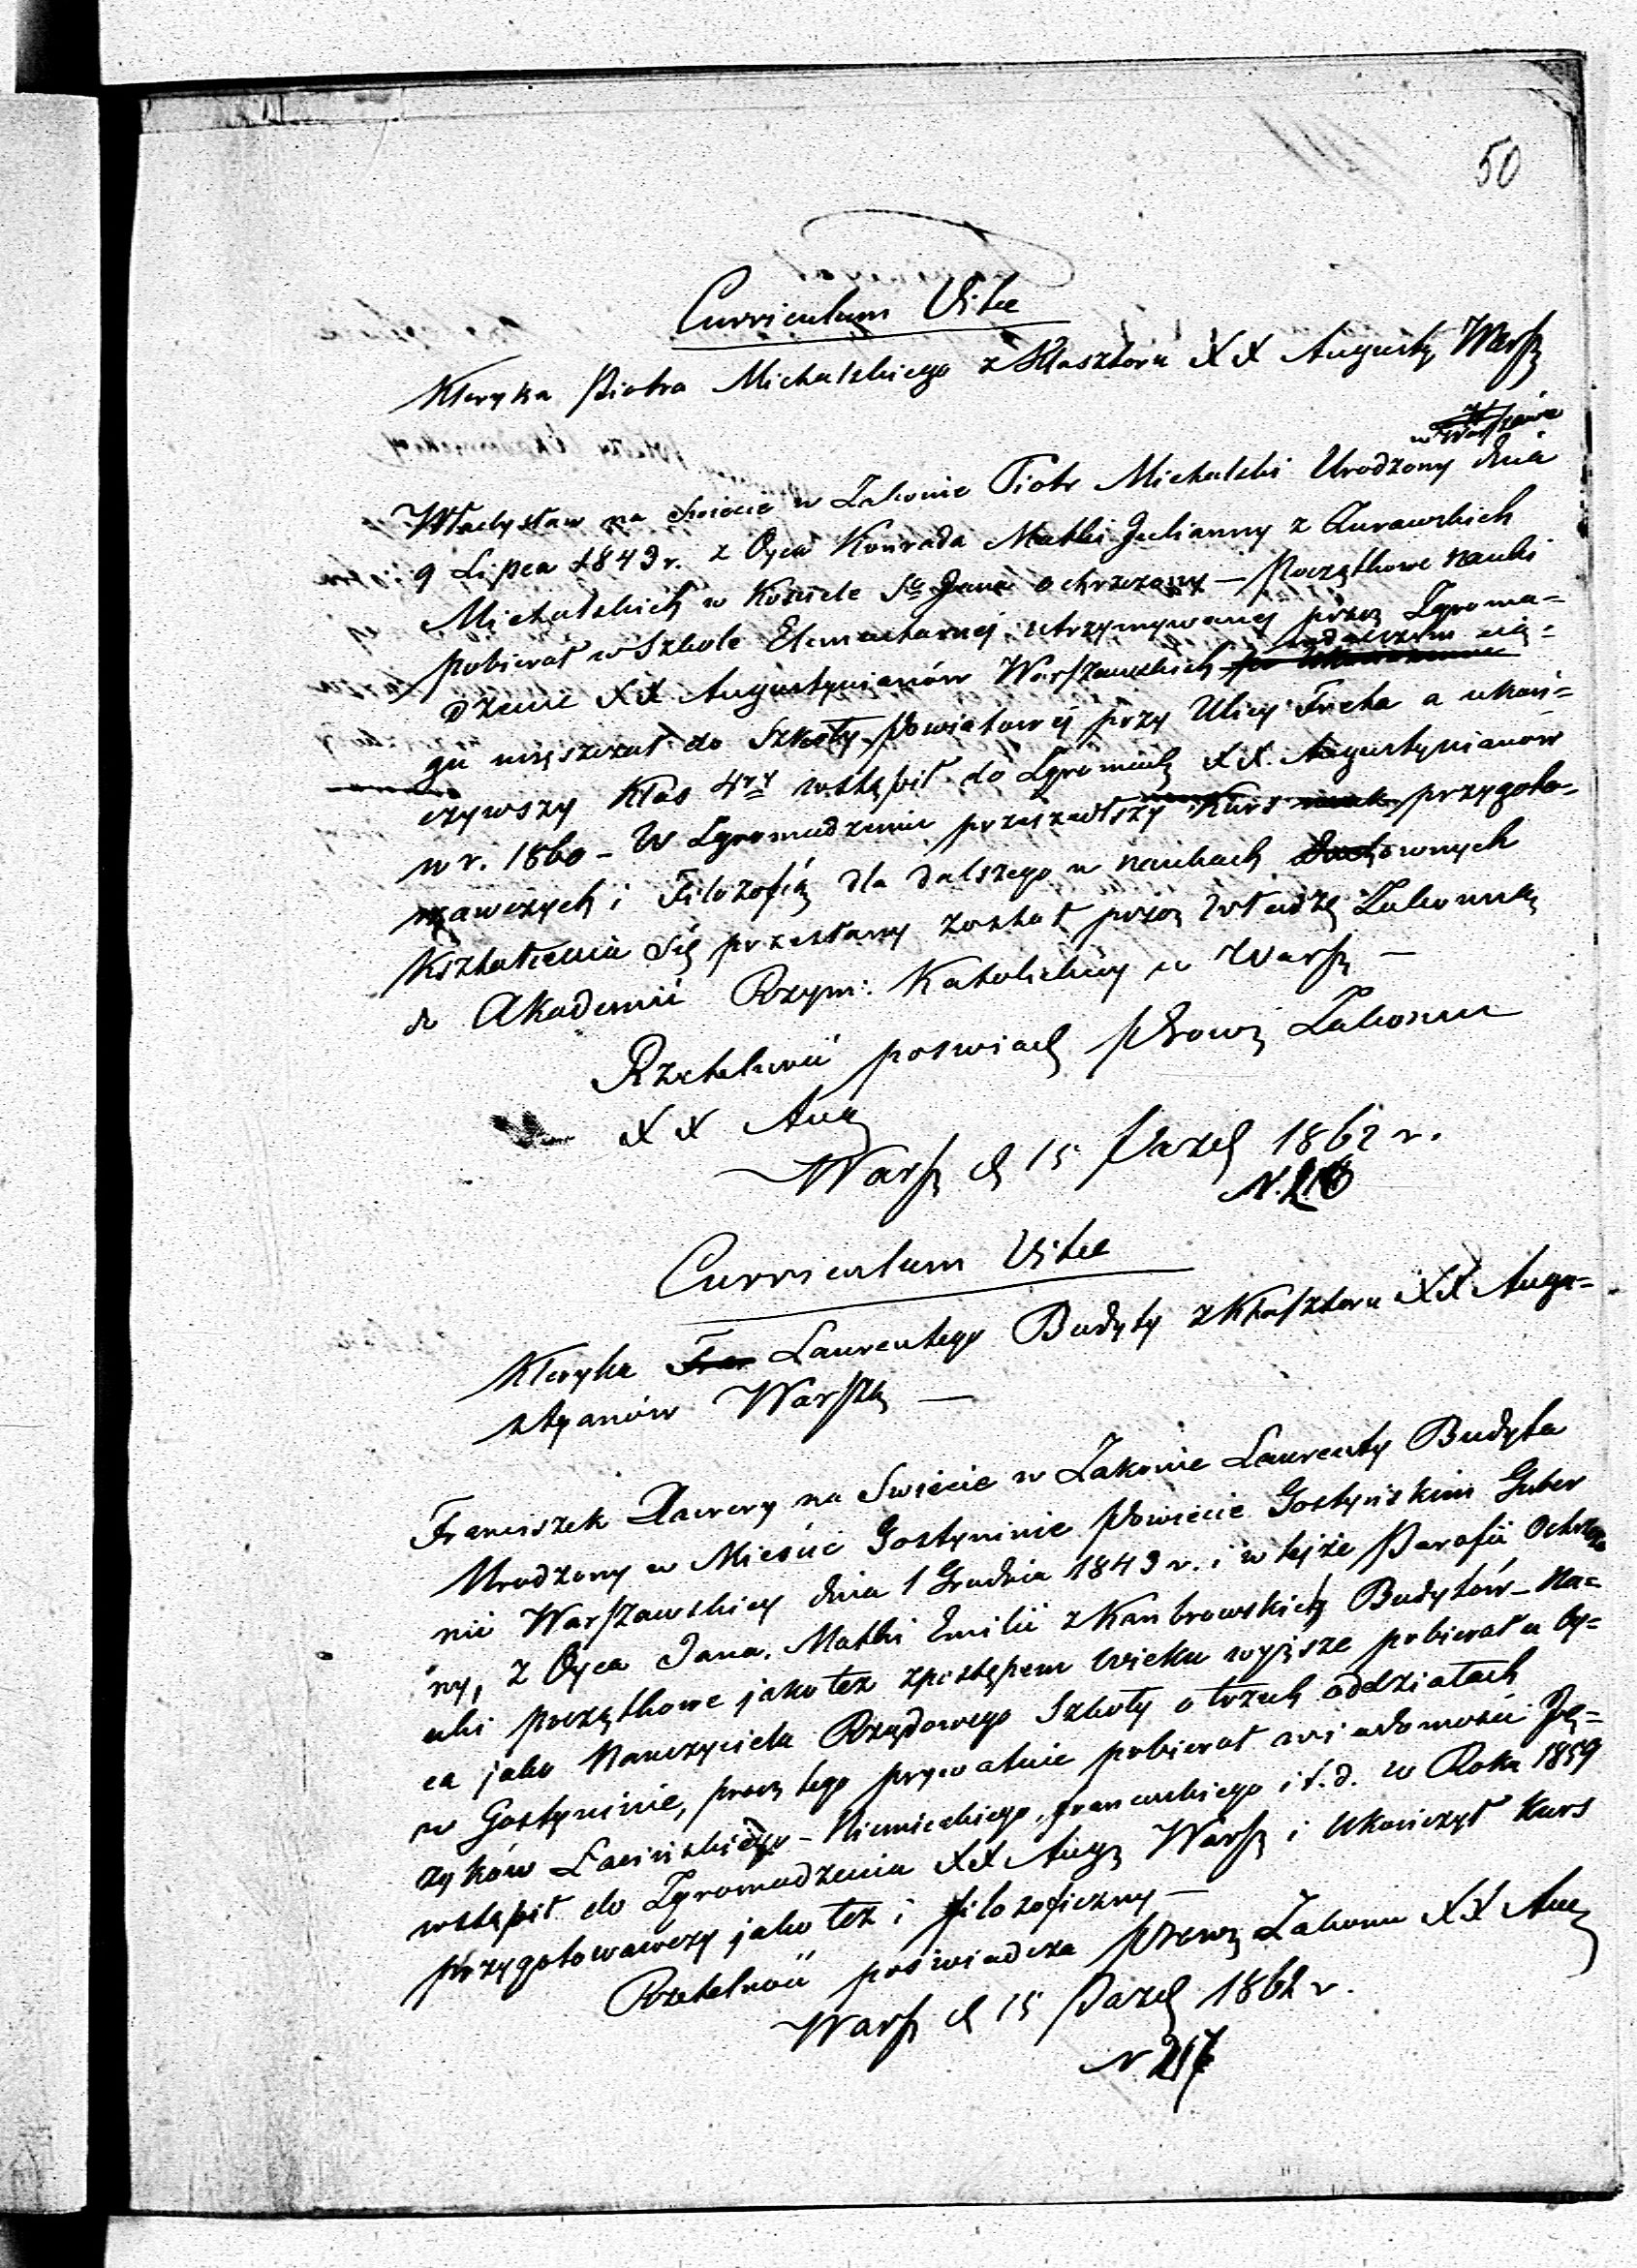 50
Curriculum Vitae
Kleryka Piotra Michalskiego z Klasztoru XX Augusty Warsz
w Warszawie
Władysław na Swiecie w Zakonie Piotr Michalski Urodzony dnia
9 Lipca 1843 r. z Oyca Konrada Matki Julianny z Żurawskich
Michalskich w Kościele Sgo Jana ochrzczony – Początkowe nauki
pobierał w Szkole Elementarnej utrzymywanej przez Zgroma=
dzenie XX Augustynianów Warszawskich w dalszym cią=
gu uczęszczał do Szkoły Powiatowej przy Ulicy Freta a ukoń=
czywszy Klas 4ry wstąpił do Zgromadz XX. Augustynianów
w r. 1860 – W Zgromadzeniu przeszedłszy Kurs nauk przygoto=
wawczych i Filozofią dla dalszego w naukach duchownych
Kształcenia Się przesłany został przez Władzę Zakonną
do Akademii Rzym: Katolickiey w Warsz –
Rzetelność poswiad Prowin Zakonu
XX Aug
Warsz d 15 Pazd 1862 r.
N. 216
Curriculum Vitae
Kleryka Laurentego Budyty z Klasztoru XX Augu=
styanów Warsza –
Franciszek Xawery na Swiecie w Zakonie Laurenty Budyta
Urodzony w Mieście Gostyninie Powiecie Gostyńskim Guber
nii Warszawskiey dnia 1 Grudnia 1843 r. i w tejże Parafii Ochrzczo
ny, z Oyca Jana, Matki Emilii z Kambrowskich Budytów – Na=
uki początkowe jako też z postępem wieku wyższe pobierał u Oy=
ca jako Nauczyciela Rządowego Szkoły o trzech oddziałach
w Gostyninie, prócz tego prywatnie pobierał wiadomości Ję=
zyków Łacińskiego – Niemieckiego, francuskiego i t. d. w Roku 1859
wstąpił do Zgromadzenia XX Aug Warsz i Ukończył Kurs
przygotowawczy jako też i filozoficzny –
Rzetelność poświadcza Prowin Zakonu XX Aug
Warsz d 15 Pazd 1862 r.
N 217